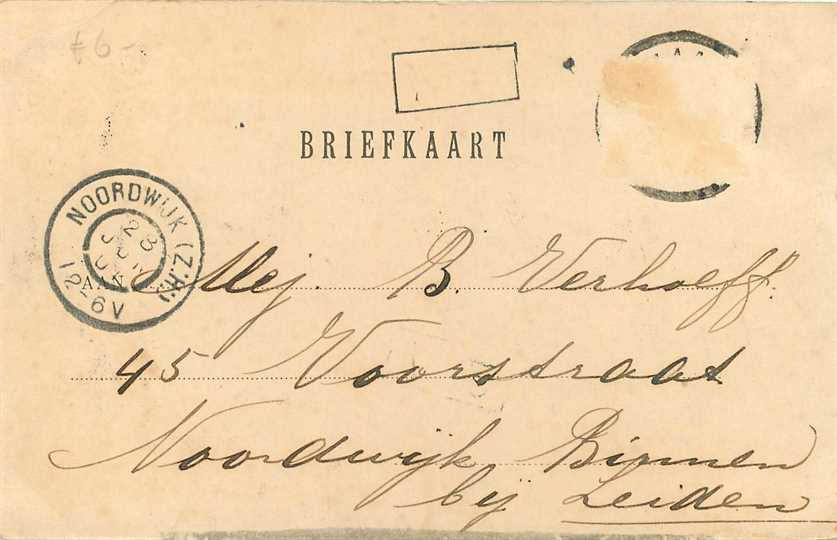 £6-
BRIEFKAART
NOORDWIJK (Z.H.)
23
JUN
AAN
12-6V
Mej. B. Verhoeff.
45 Voorstraat
Noordwijk Binnen
bij Leiden